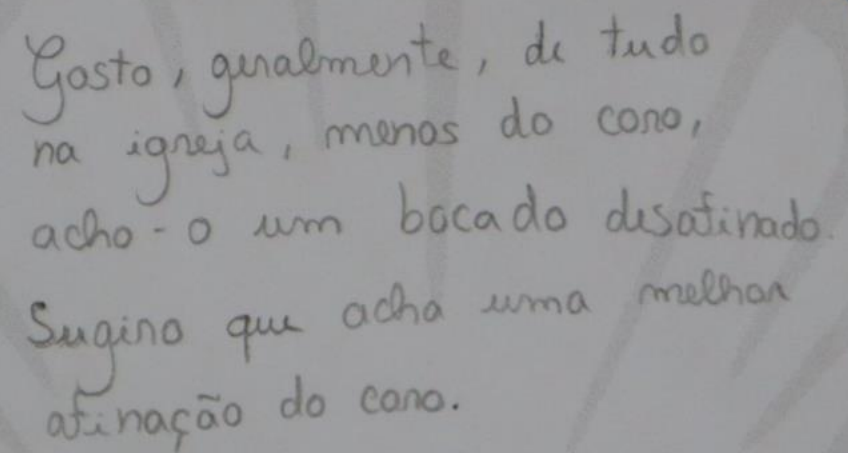 Gosto, geralmente, de tudo
na igreja, menos do coro,
acho-o um bocado desafinado.
Sugiro que acha uma melhor
afinação do coro.